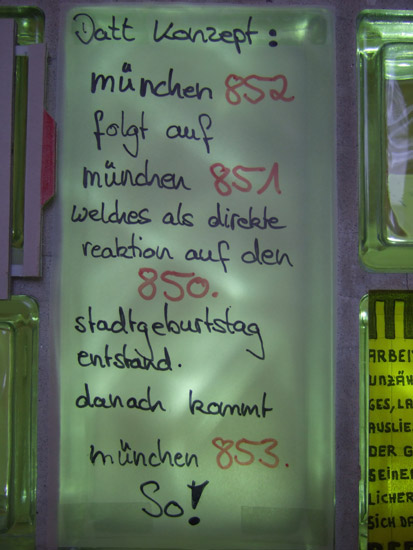 Datt Konzept:
münchen 852
folgt auf
münchen 851
welches als direkte
reaktion auf den
850.
stadtgeburtstag
entstand.
danach kommt
münchen 853.
So!
ARBEI
UNZÄH
GES, LA
AUSLIE
DER G
SEINE
LICHER
SICH DA